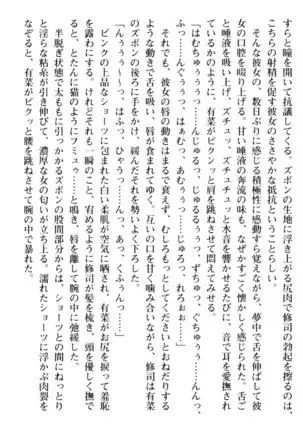 すらと瞳を開いて抗議してくる。ズボンの生地に浮き上がる尻肉で修司の勃起を擦るのは、
こちらの射精を促す彼女のささやかな抵抗ということらしい。
そんな彼女の、数日ぶりに感じる積極性に感動すら覚えながら、夢中で舌を伸ばして彼
女の口腔を啜り上げる。甘い唾液の奔流の味も、なぜかすごく懐かしく感じられた。舌ご
と唾液を吸い上げ、ズチュッ、ズチュチュッと水音を響かせるたびに、音で耳を愛撫され
ているかのように、有菜がビクビクッと肩を跳ねさせて悶えてみせる。
「はむちゅうぅ……んっ、んじゅるぅ……んじゅるっ、ずちゅっ、ぐちゅうぅ……んんっ、
ふっ……んぐぅぅっ、はぁむっ、あむぅぅっ……じゅろっ、れろぉぉっ……」
それでも、彼女の唇の動きはまるで衰えず、むしろもっとしてくださいとおねだりする
ような動きで舌を吸い、唇が食まれてゆく。互いの口を甘く噛み合いながら、修司は有菜
のズボンの後ろに手をかけ、緩んだそれを勢いよく下ろした。
「んぅぅぅ～～っ、はふっ、ひゃうっ……んっ、あっ、くふぅんっ……」
ピンクの上品なショーツに包まれた白い柔肌が空気に晒され、有菜がお尻を振って羞恥
を露わにする。けれどそれも一瞬のこと、宥めるように修司が髪を梳き、頭を優しく撫で
ると、とたんに猫のようにフミュゥ……と鳴き、唇を離して腕の中に弛緩した。
半脱ぎ状態で太ももに引っかかるズボンの股間部分からは、ショーツとの間にねっとり
と淫らな粘糸が引き伸びて、濃厚な女の匂いが立ち上る。濡れたショーツに浮かぶ肉裂を
有菜がビクッと腰を跳ねさせて腕の中で暴れた。